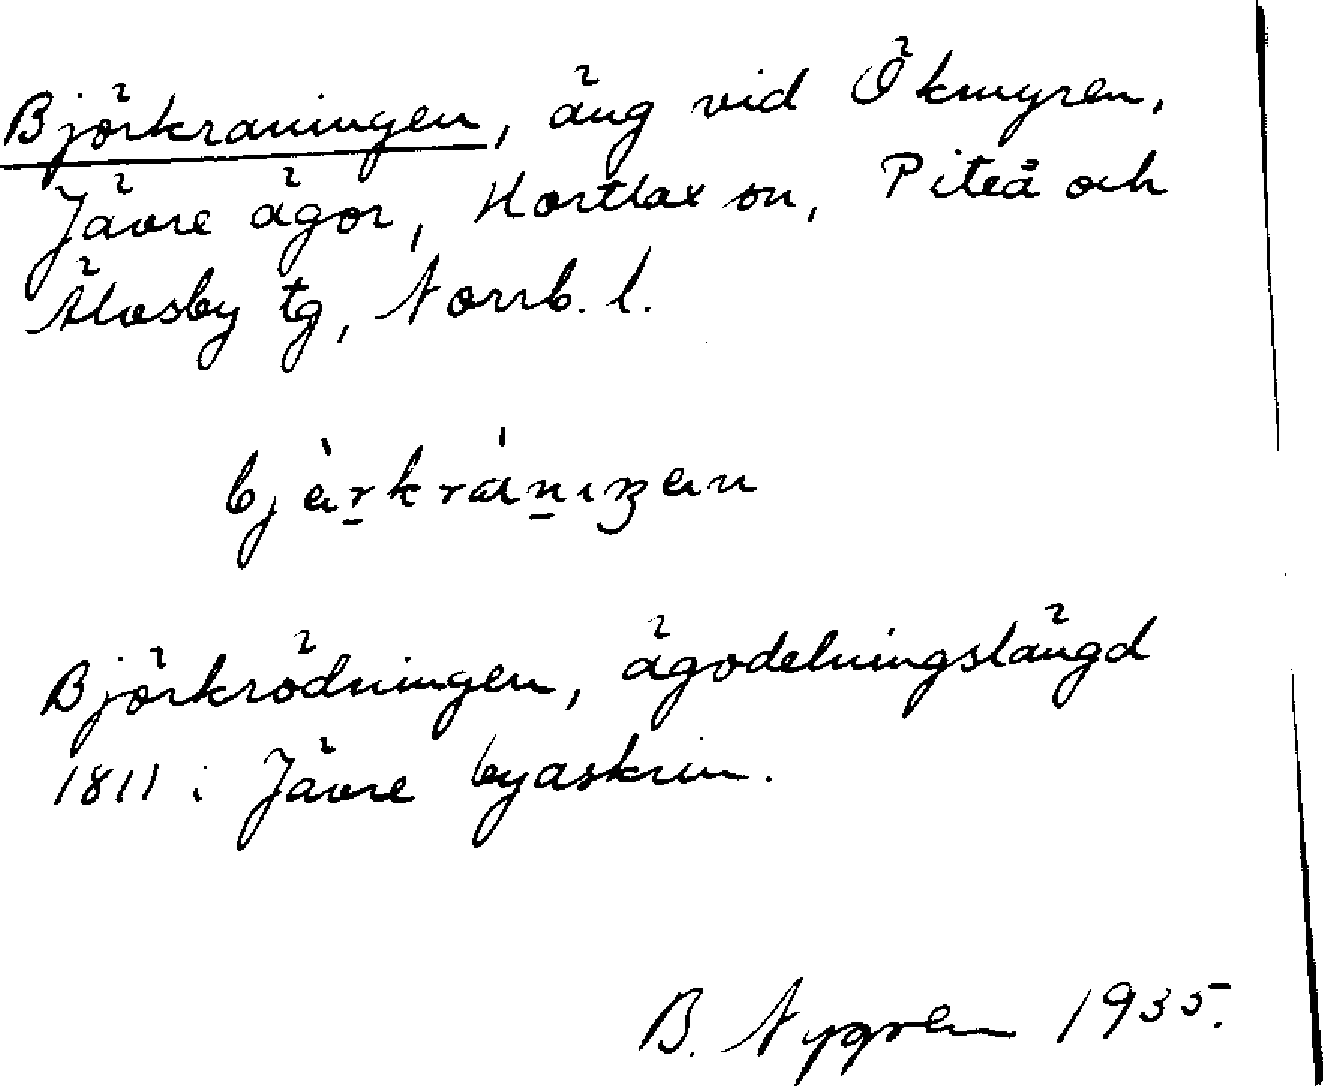 Björkraningen, äng vid Ökmyren,
Jävre ägor, Hortlax sn, Piteå och
Älvsby tg, Norrb. l.
bjä̀rkrániŋen
Björkrödningen, ägodelningslängd
1811 i Jävre byaskrin.
B. Nygren 1935.